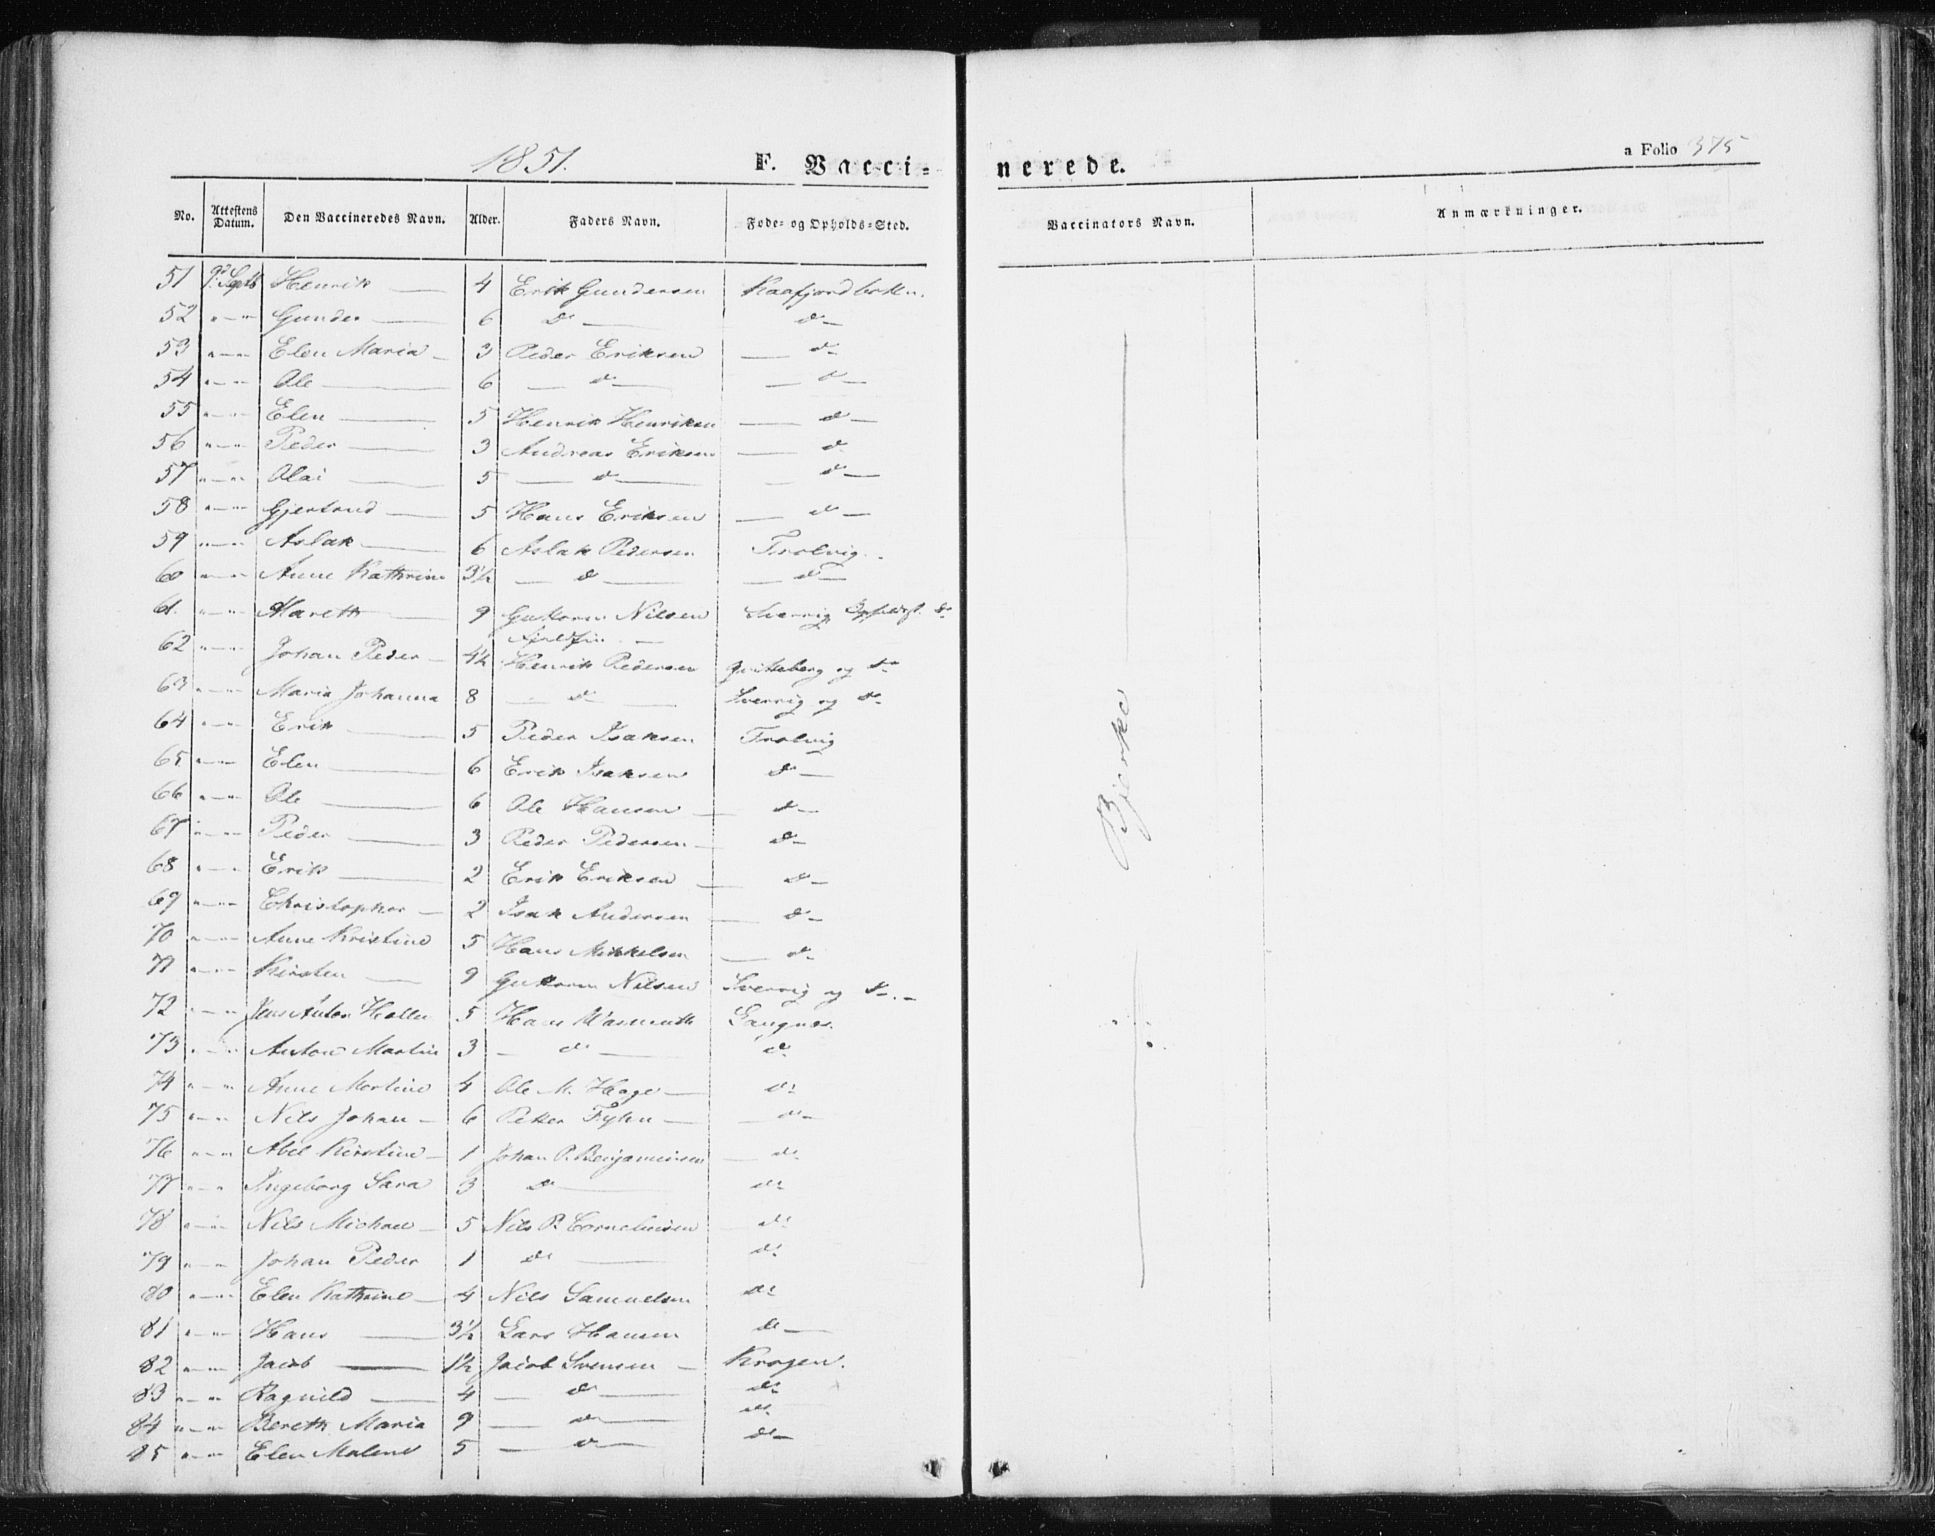 1851. F. Vacci= nerede. a Folio 375
No. Attestens Datum. Den Vaccineredes Navn. Alder. Faders Navn. Føde- og Opholds-Sted. Vaccinators Navn. Anmærkninger.
51 9d Septb Henrik — 4 Erik Gundersen Kaafjordbotn.
52 " — " Gunder — 6 do — do —
53 " — " Elen Maria — 3 Peder Eriksen — do
54 " — " Ole — 6 — do — — do —
55 " — " Elen — 5 Henrik Henriksen — do —
56 " — " Peder — 3 Andreas Eriksen — do
57 " — " Olai — 5 — do — — do —
58 " — " Gjertrud — 5 Hans Eriksen — do —
59 " — " Aslak — 6 Aslak Pedersen Trolvig.
60 " — " Anne Kathrine 3½ — do — — do —
61. " — " Mareth — 9 Guttorm Nilsen Sverrig do
62 " — " Johan Peder — 4½ Henrik Pedersen og do
63 " — " Maria Johanna 8 — do — Sverrig og do
64 " — " Erik — 5 Peder Isaksen Trolvig
65 " — " Elen — 6 Erik Isaksen do —
66 " — " Ole — 6 Ole Hansen — do —
67 " — " Peder — 3 Peder Pedersen — do —
68 " — " Erik — 2 Erik Eriksen — do —
69 " — " Christopher — 2 Isak Andersen — do —
70 " — " Anne Kristine 5 Hans Mikkelsen — do
71 " — " Kirsten — 9 Guttorm Nilsen Sverrig og do —
72 " — " Jens Anton Holler 5 Hans Wasmuth Langnes.
73 " — " Anton Martin 3 — do — do
74 " — " Anne Martine 4 Ole M. Hage — do
75 " — " Nils Johan — 6 Petter Fyhn — — do —
76 " — " Abel Kirstine — 1 Johan P. Benjaminsen — do
77 " — " Ingeborg Sara 3 do — do
78 " — " Nils Michael — 5 Nils P. Corneliusen — do
79 " — " Johan Peder 1 do — do
80 " — " Elen Kathrine — 4 Nils Samuelsen do
81 " — " Hans — 3½ Lars Hansen do —
82 " — " Jacob — 1½ Jacob Svensen — Krogen.
83 " — " Ragnild — 4 — do — do
84 " — " Bereth Maria 9 — do — do
85 " — " Elen Malene 5 — do — do —
Bjerke